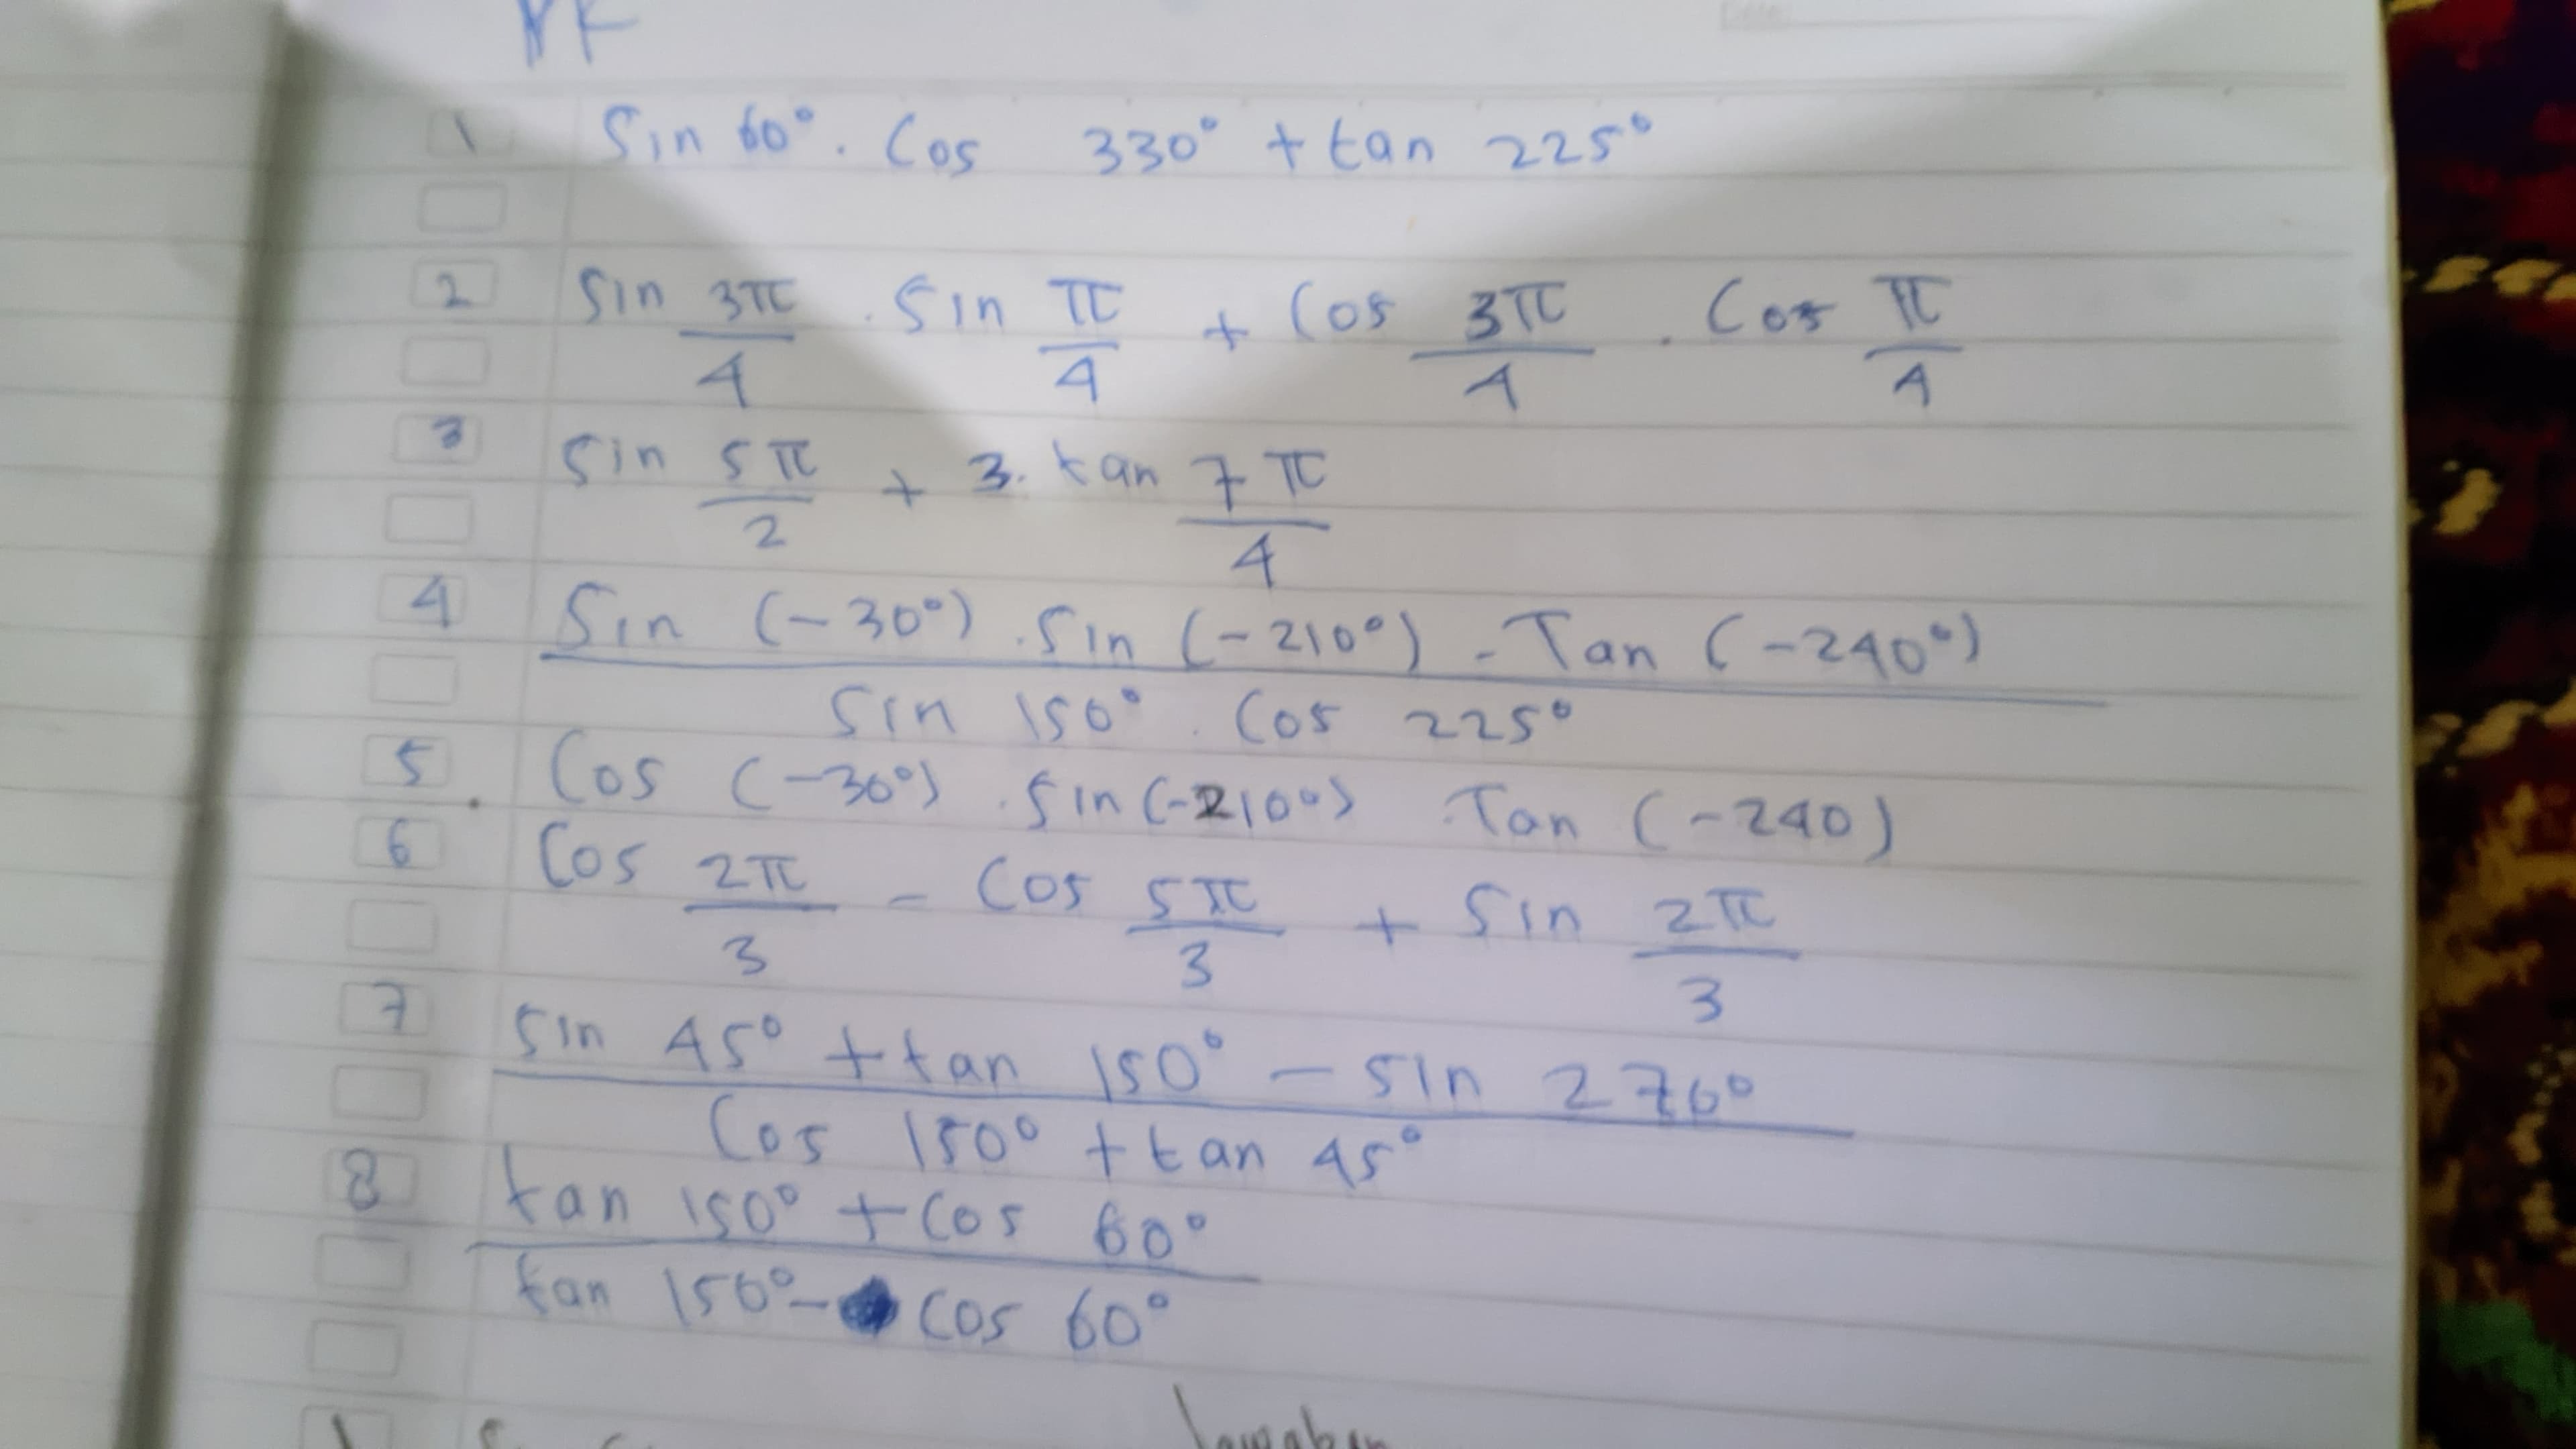 PR
1 Sin 60° . Cos 330° + tan 225°
2 Sin 3π/4 . Sin π/4 + Cos 3π/4 . Cos π/4
3 Sin 5π/2 + 3. tan 7π/4
4 Sin (-30°) . Sin (-210°) - Tan (-240°)
Sin 150° . Cos 225°
5 Cos (-30°) . Sin (-210°) . Tan (-240)
6 Cos 2π/3 - Cos 5π/3 + Sin 2π/3
7 Sin 45° + tan 150° - Sin 270°
Cos 150° + tan 45°
8 tan 150° + Cos 60°
tan 150° - Cos 60°
Jawaban